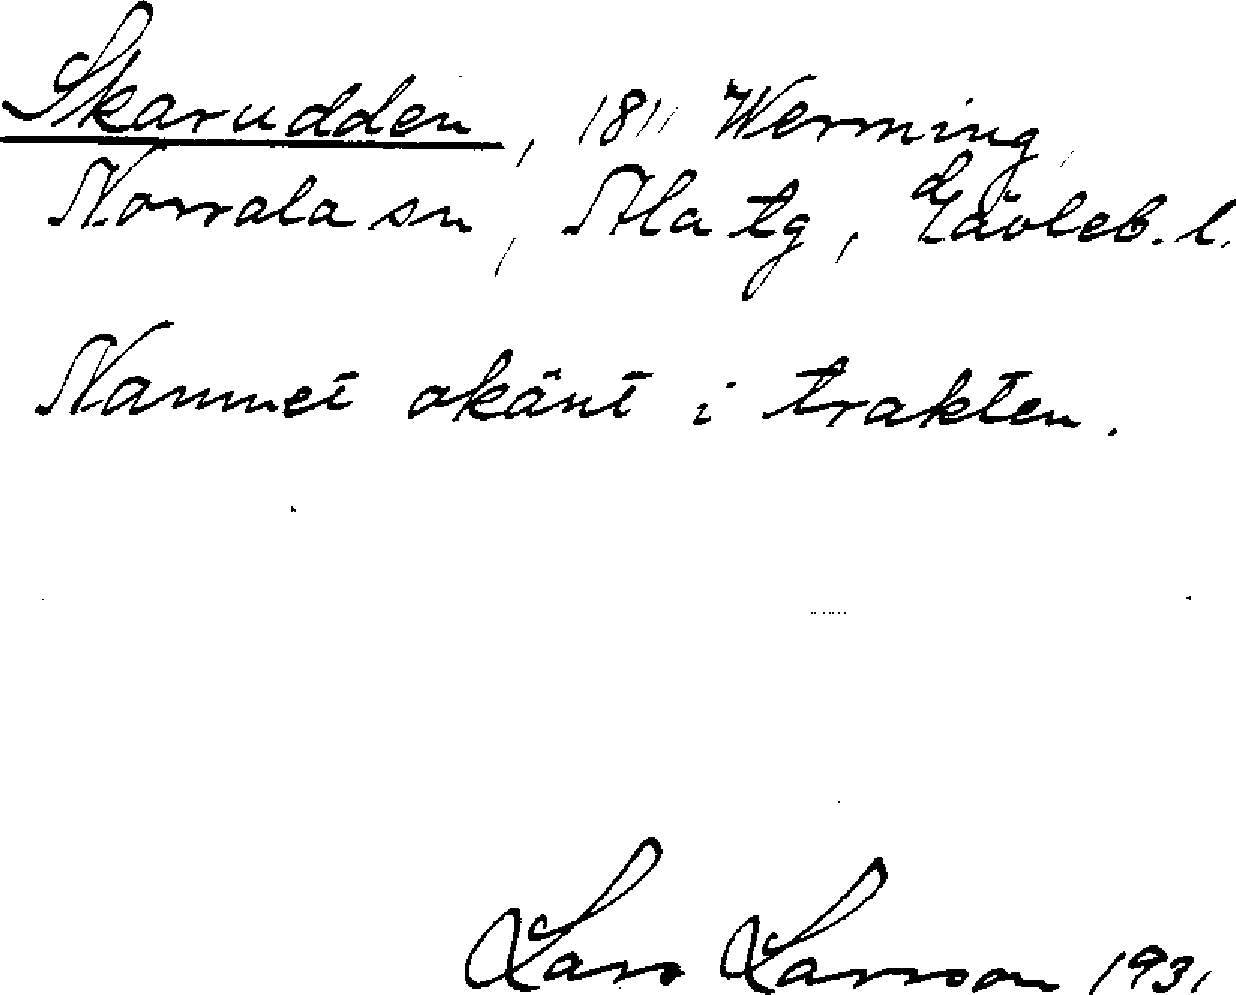 Skarudden, 1811 Werming,
Norrala sn, Ala tg, Gävleb. l.
Namnet okänt i trakten.
Lars Larsson 1931